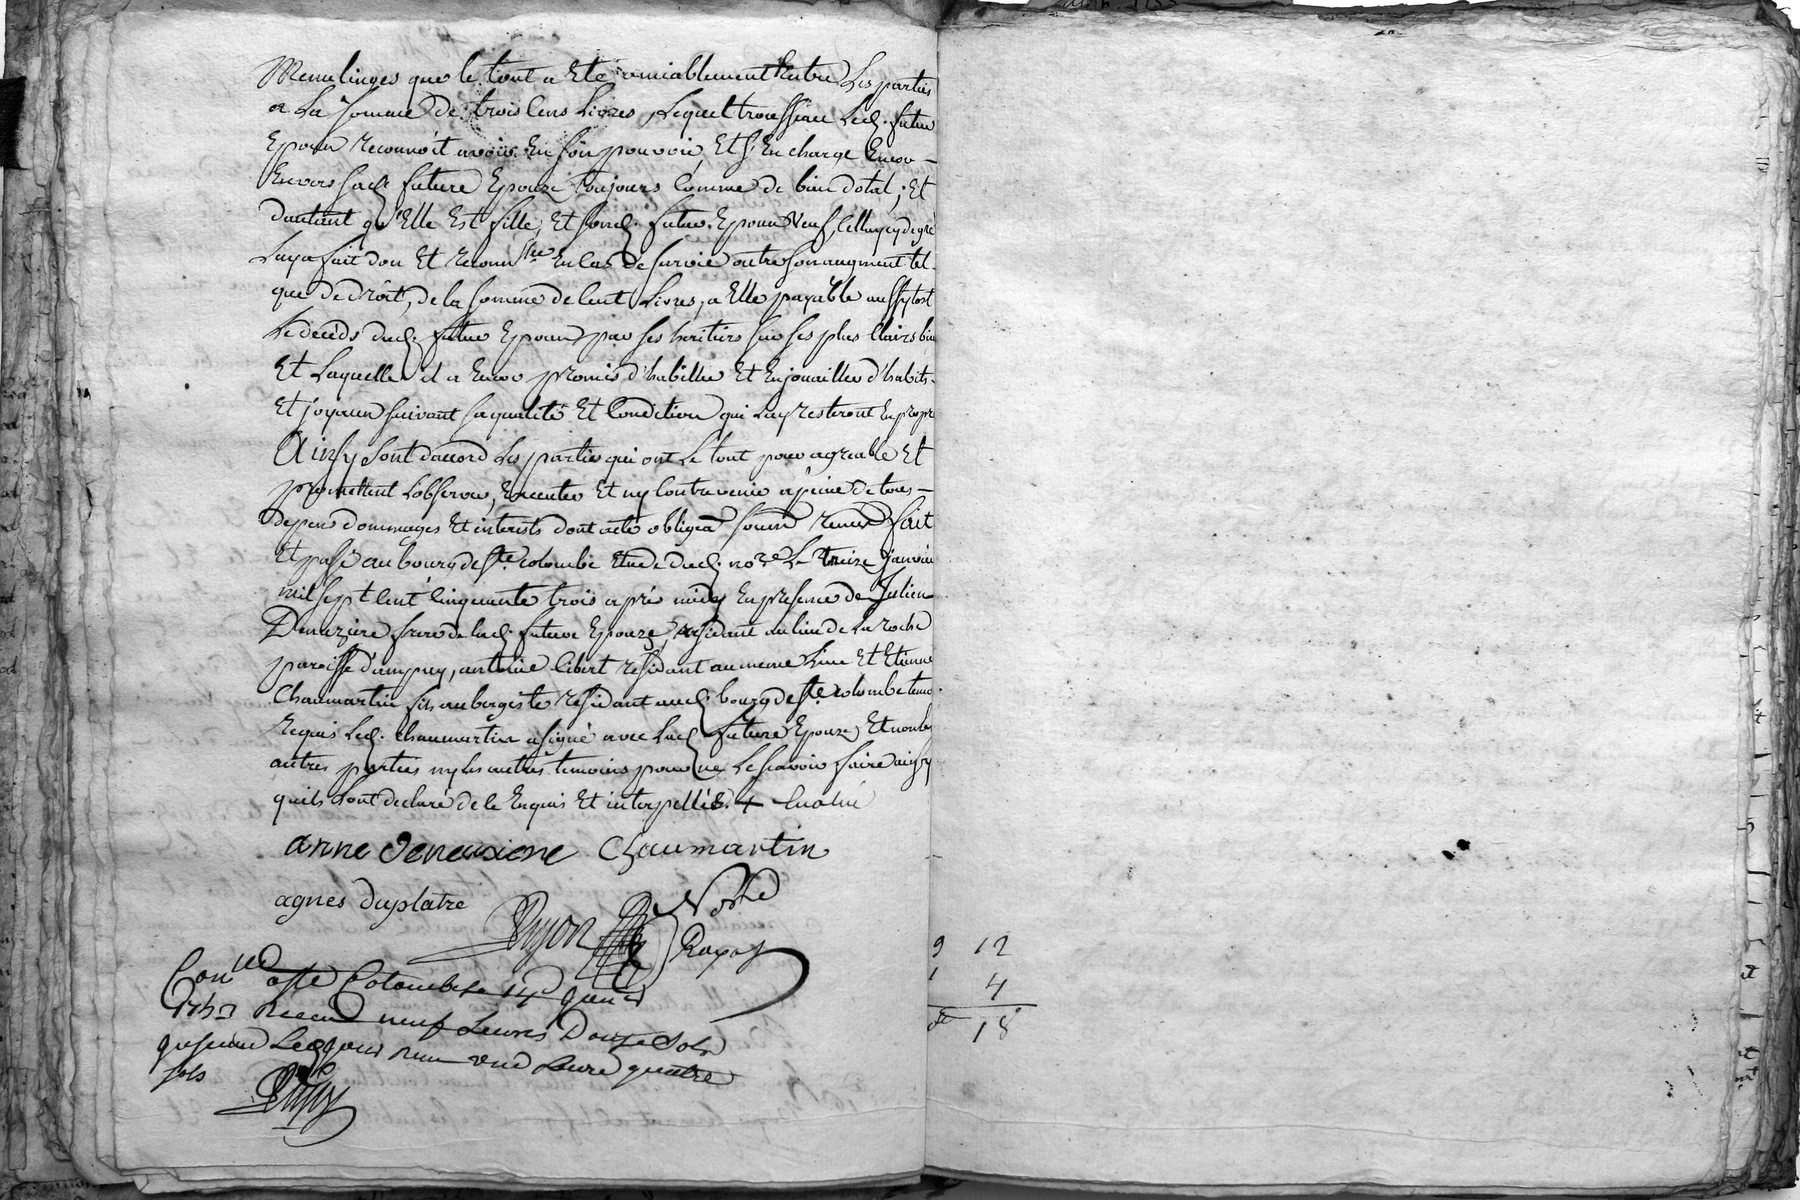 Menulinges que le tout a Eté amiablement Entre Les parties
a La somme de trois Cens Livres, Lequel trousseau Led. futur
Epoux reconnoit avoir En son pouvoir, Et s'En charge Encor
Envers sad. future Epouze toujours Comme de bien dotal; Et
dautant qu'Elle Est fille, Et sond. futur Epoux Veuf, Celluycy de gré
Luy a fait don Et En Cas de survie outre son augment tel
que de droit, de la somme de Cent Livres, a Elle payable aussytost
Le décéds dud. futur Epoux par ses heritiers sur ses plus Clairs bien
Et Laquelle il a Encor promis d'habiller Et Enjouailler d'habits
Et joyaux suivant sa qualité Et Condition qui Luy resteront En propre
Ainsy sont daccord Les parties qui ont Le tout pour agreable Et
promettent L'observer, Executer Et n'y Contrevenir a peine de tous
depens dommages Et interests dont acte obligean soum renon fait
Et passé au bourg de Ste colombe Etude dud. nore Le treize janvier
mil sept Cent Cinquante trois après midy En presence de Julien
Deneuziere frere de lad. future Epouze, residant au lieu de La roche
paroisse d'ampuy, antoine Cibert residant au meme Lieu Et Etienne
Chaumartin fils aubergiste residant aud. bourg de Ste colombe temo.
requis Led. chaumartin a signé avec Lad. future Epouze Et non les
autres parties ny les autres temoins pour ne Le scavoir faire ainsy
quils L'ont declaré de le Enquis Et interpellés. +
anne deneuziere Chaumartin
agnes duplatre
Nore
Royal
Conllé a Ste Colombe Le 14
1753 Receu neuf Livres Douze Sols
Livre quatre
sols
9 12
1 4
18